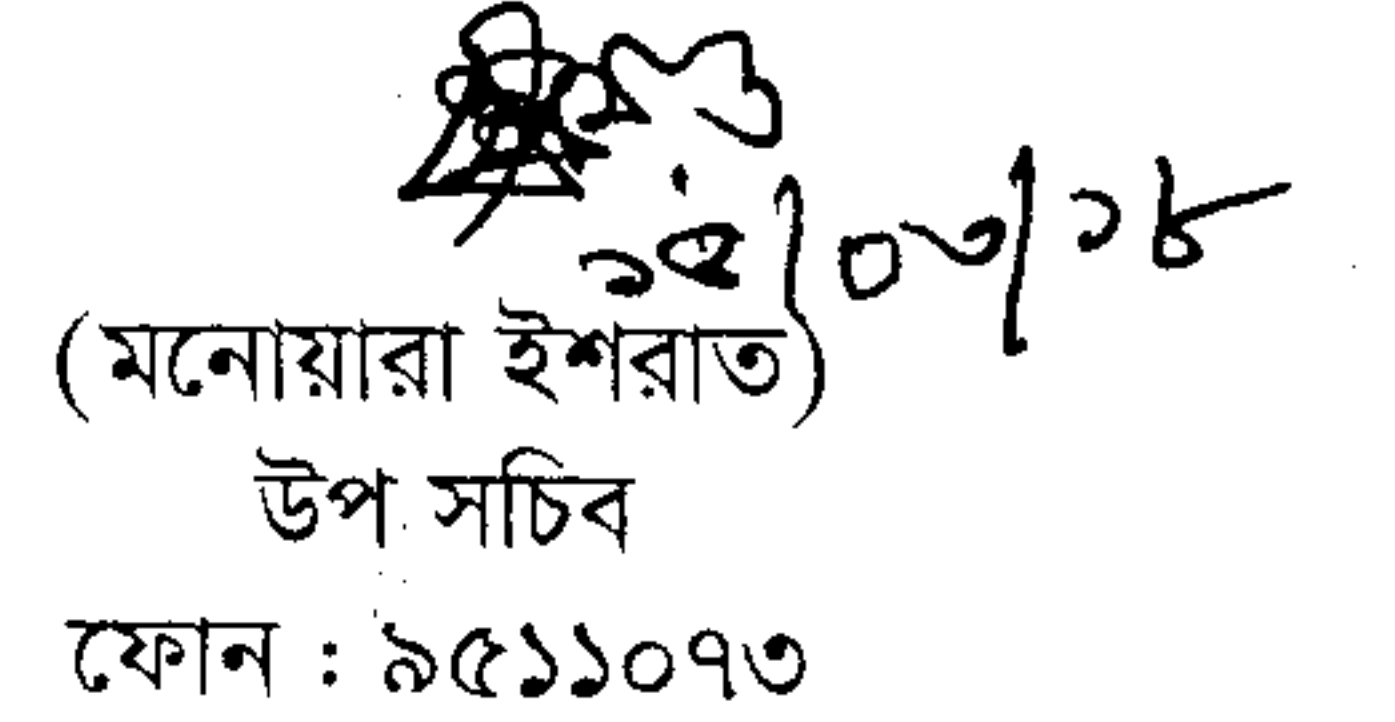 ১৫/০৩/১৮
(মনোয়ারা ইশরাত)
উপ সচিব
ফোন : ৯৫১১০৭৩